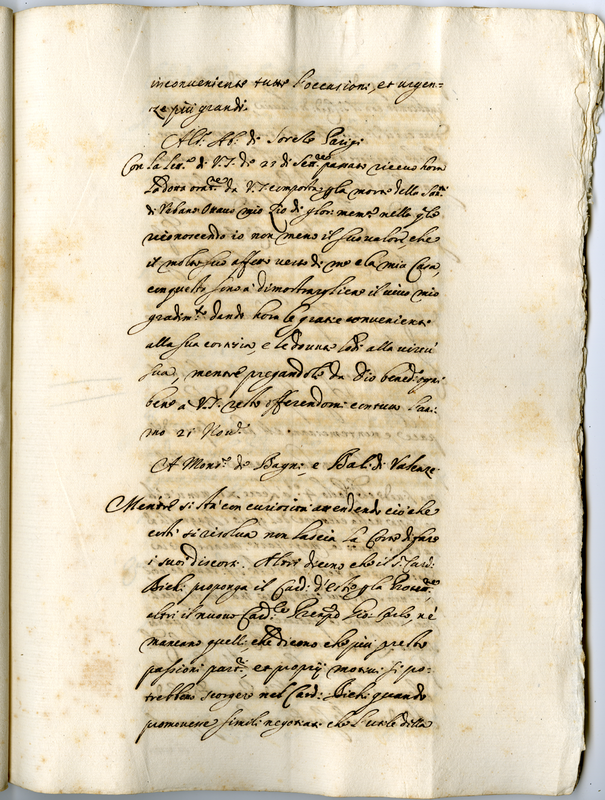 inconveniente tutte l'occasioni, et urgen=
ze più grandi.
All'Ab. di Sorete Parigi
Con la lett.ª di V.S. de 23 di Sett.re passato ricevo hora
la dotta orat.ne da V.S. composta p la morte della San.
di Urbano Ottavo mio Zio di glor. mem.
riconoscendo io non meno il suo valore che
il molto suo affetto verso di me e la mia Casa,
con questo fine à dimostrargliene il vivo mio
gradim.to dando hora le gratie convenienti
alla sua cortesia, e le dovute lodi alla virtù
sua, mentre pregandole da Dio bened. ogni
bene a V.S. resto offerendomi con tutto l'ani=
mo 21 Nov.
A Mons. de Bagni, e Bal. di Valenze
Mentre si stà con curiosità attendendo ciò che
costì si risolva non lascia la Corte di fare
i suoi discorsi. Altri dicono che il S. Card.
Bichi proponga il Card. d'Este p la Protett.ne
altri il nuovo Card.le Prenpe Gio: Carlo, nè
mancano quelli che dicono che più presto
passioni part., et proprij motivi si po=
trebbero scorgere nel Card. Bichi quando
promovesse simili negotiati che l'utile della